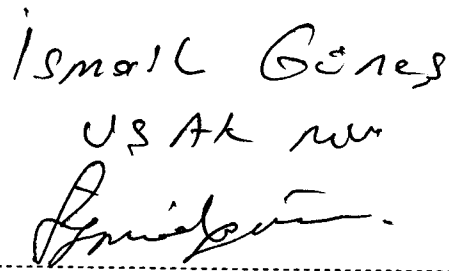 İsmail Güneş
UŞAK MV